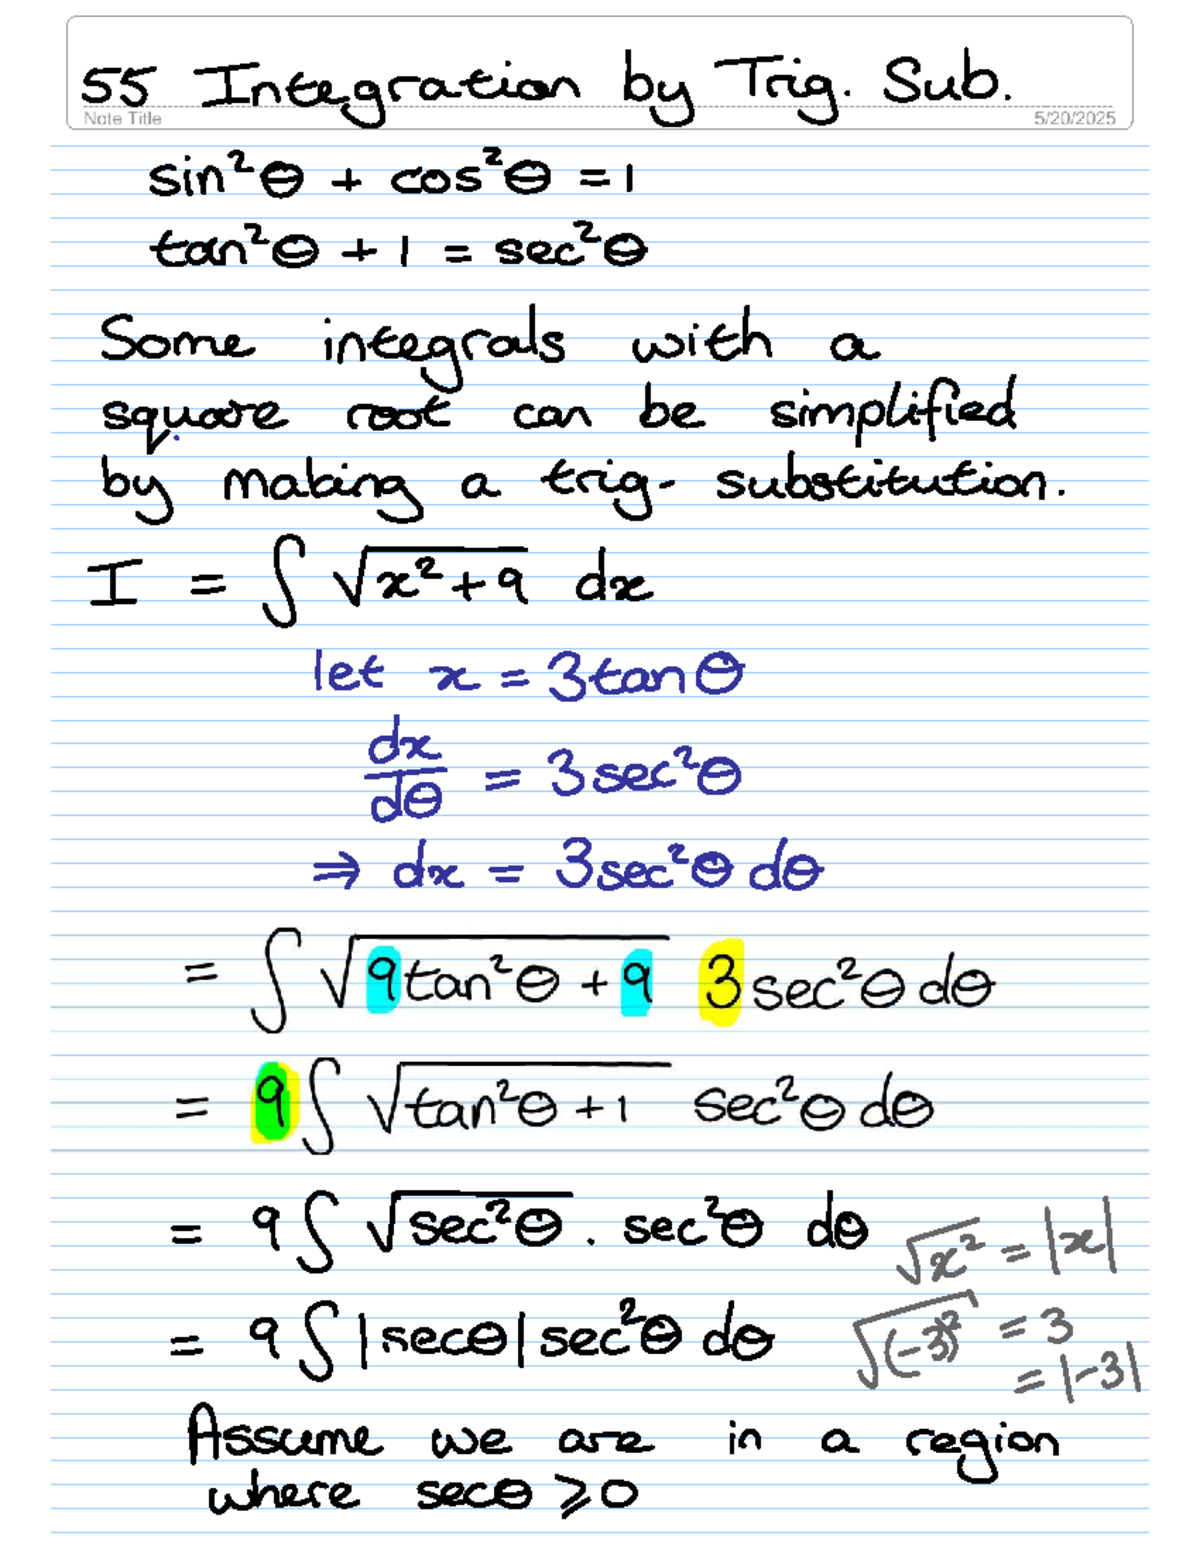 55 Integration by Trig. Sub.
Note Title 5/20/2025
sin²θ + cos²θ = 1
tan²θ + 1 = sec²θ
Some integrals with a
square root can be simplified
by making a trig- substitution.
I = ∫ √(x²+9) dx
let x = 3tanθ
dx/dθ = 3sec²θ
⇒ dx = 3sec²θ dθ
= ∫ √(9tan²θ + 9) 3sec²θ dθ
= 9∫ √(tan²θ + 1) sec²θ dθ
= 9∫ √(sec²θ) . sec²θ dθ √(x²) = |x|
= 9∫ |secθ| sec²θ dθ √((-3)²) = 3
= |-3|
Assume we are in a region
where secθ ⩾ 0